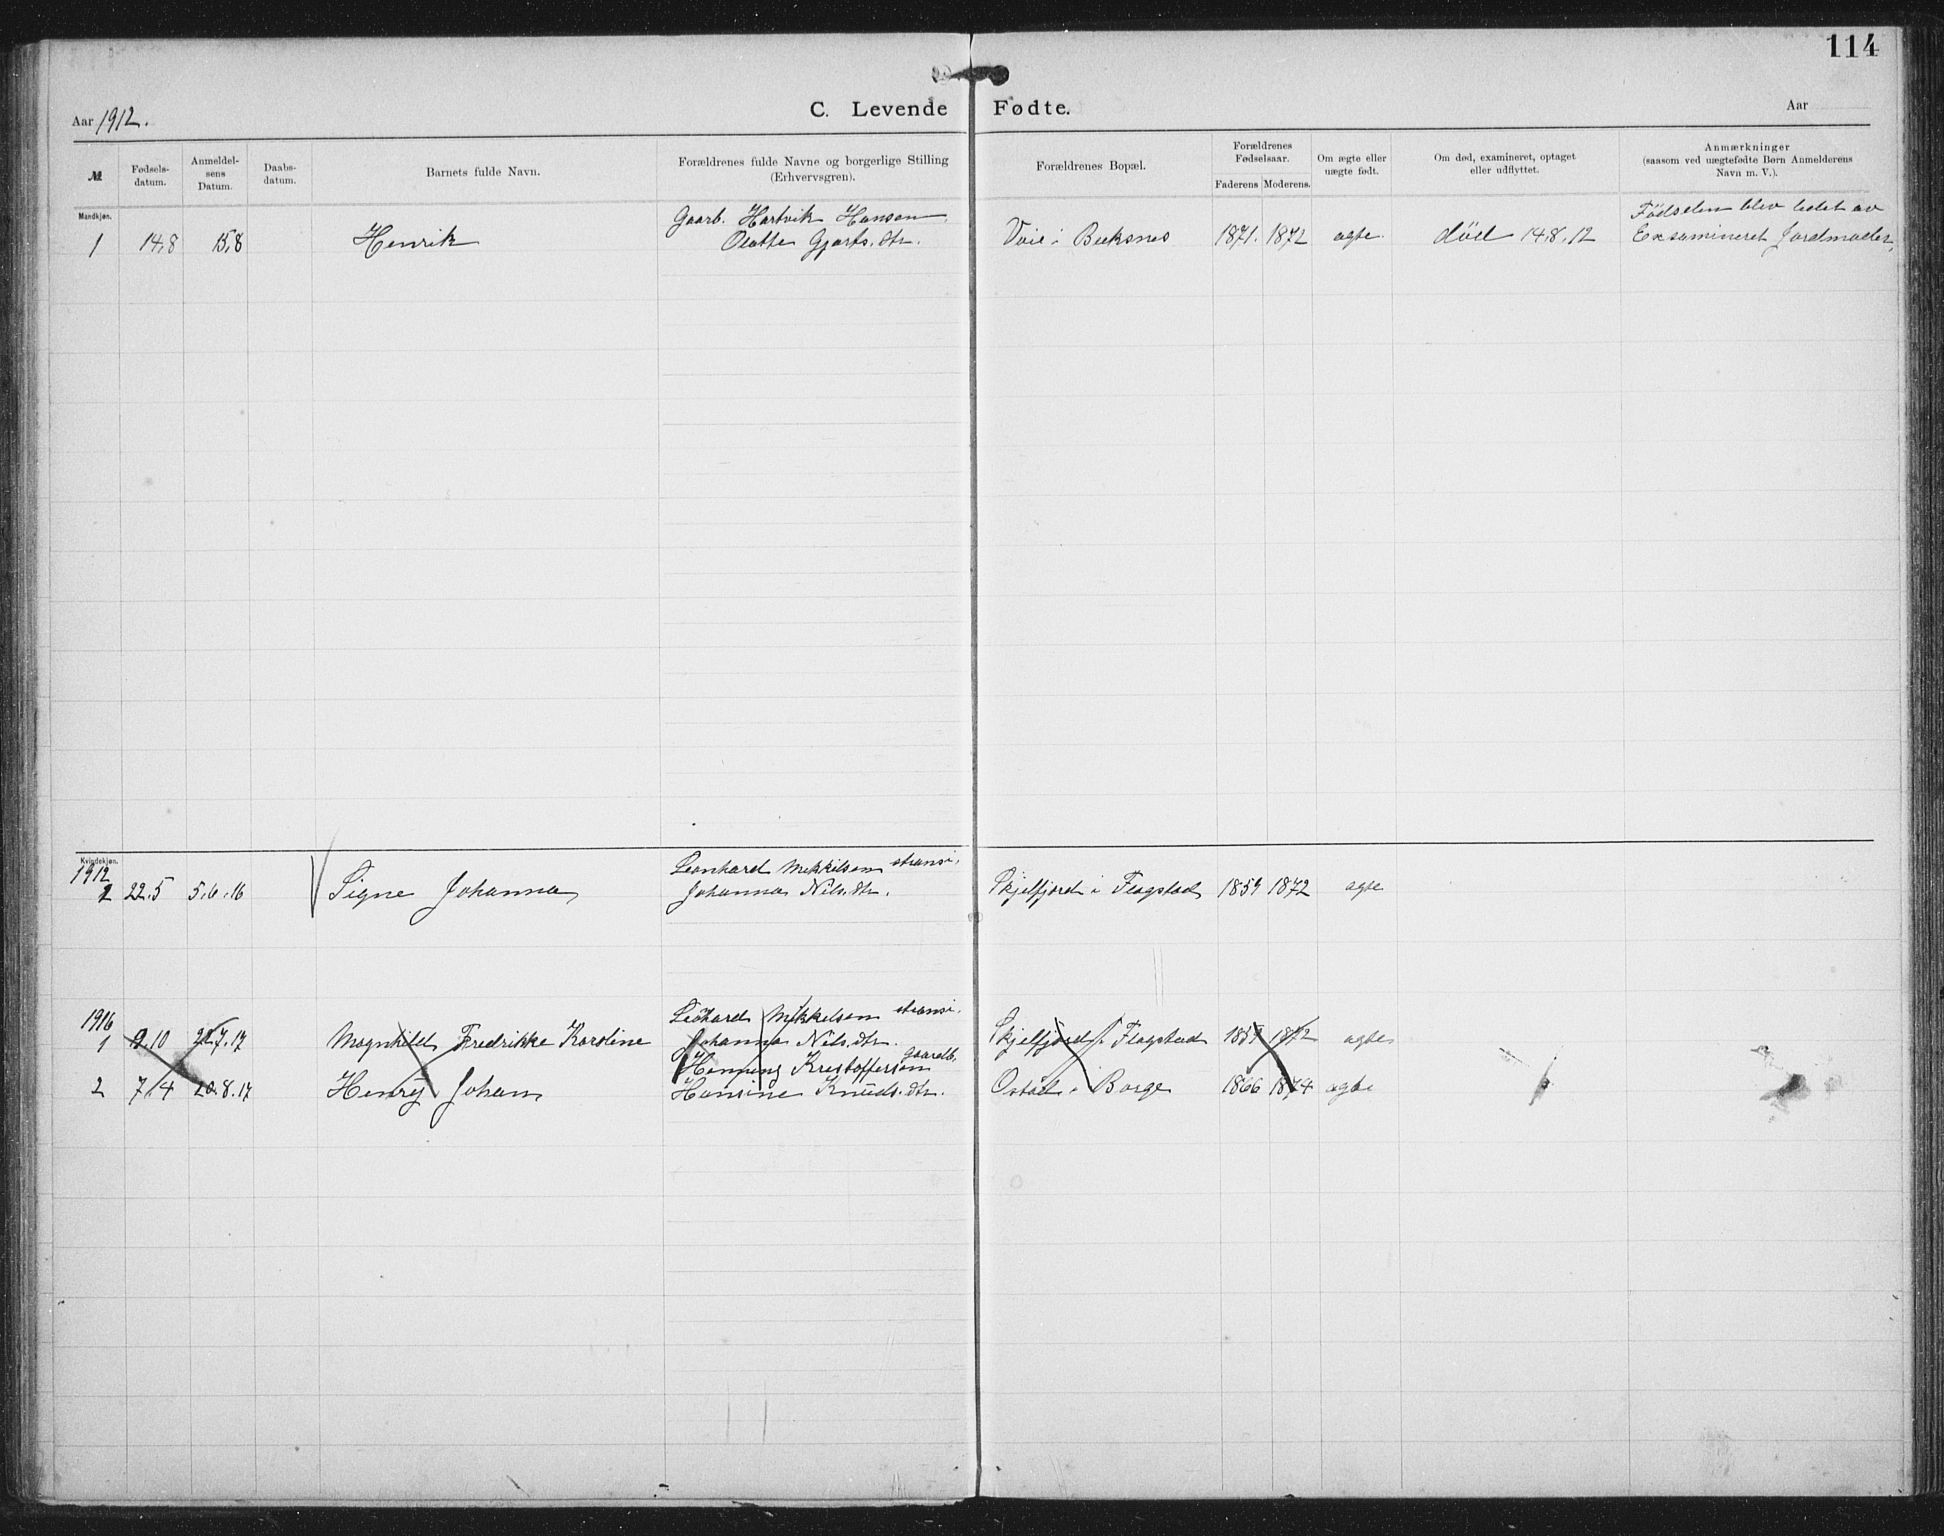 114
Aar 1912.
C. Levende Fødte.
Aar
№
Fødsels-
datum.
Anmeldel-
sens
Datum.
Daabs-
datum.
Barnets fulde Navn.
Forældrenes fulde Navne og borgerlige Stilling
(Erhvervsgren).
Forældrenes Bopæl.
Forældrenes
Fødselsaar.
Faderens Moderens.
Om ægte eller
uægte født.
Om død, examineret, optaget
eller udflyttet.
Anmærkninger
(saasom ved uægtefødte Børn Anmelderens
Navn m. V.).
Mandkjøn.
Gaarb. Hartvik Hanson Fødselen blev ledet av
1 14.8 15.8 Henrik Gjærts.dtr. Voie i Buksnes 1871. 1872 ægte død 14.8.12 Examineret Jordmoder.
Kvindekjøn.
1912 Leonhard Mikkelsen
22.5 5.6.16 Signe Johanna Johanna Nils.dtr. Skjelfjord i Flagstad 1859 1872 ægte
1916 Mikkelsen
1 9.10 7.17 Magnhild Fredrikke Karoline Johanna Nils.dtr. Skjelfjord i Flagstad 1859 1872 ægte
Henning Kristoffersen gaardb.
2 7.4 20.8.17 Henry Johan Hansine Knuds.dtr. i Borge 1866 1874 ægte